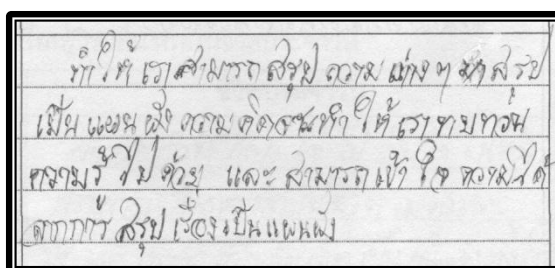 ทำให้เราสามารถสรุปความต่างๆ มาสรุป
เป็นแผนผังความคิดจะทำให้เราทบทวน
ความรู้ไปด้วย และสามารถเข้าใจความได้
จากการสรุปเรื่องเป็นแผนผัง